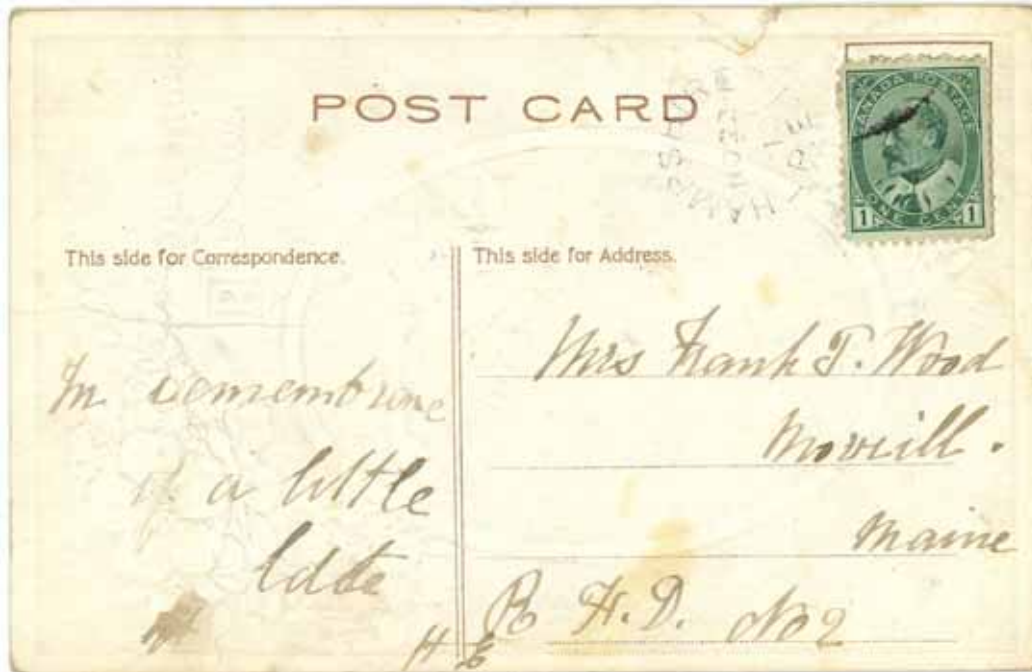 POST CARD
CANADA POSTAGE
ONE CENT
1 1
This side for Correspondence.
In remembrance
of a little
H E
This side for Address.
Mrs Frank T. Wood
Morrill.
Maine
R. F. D. No 2